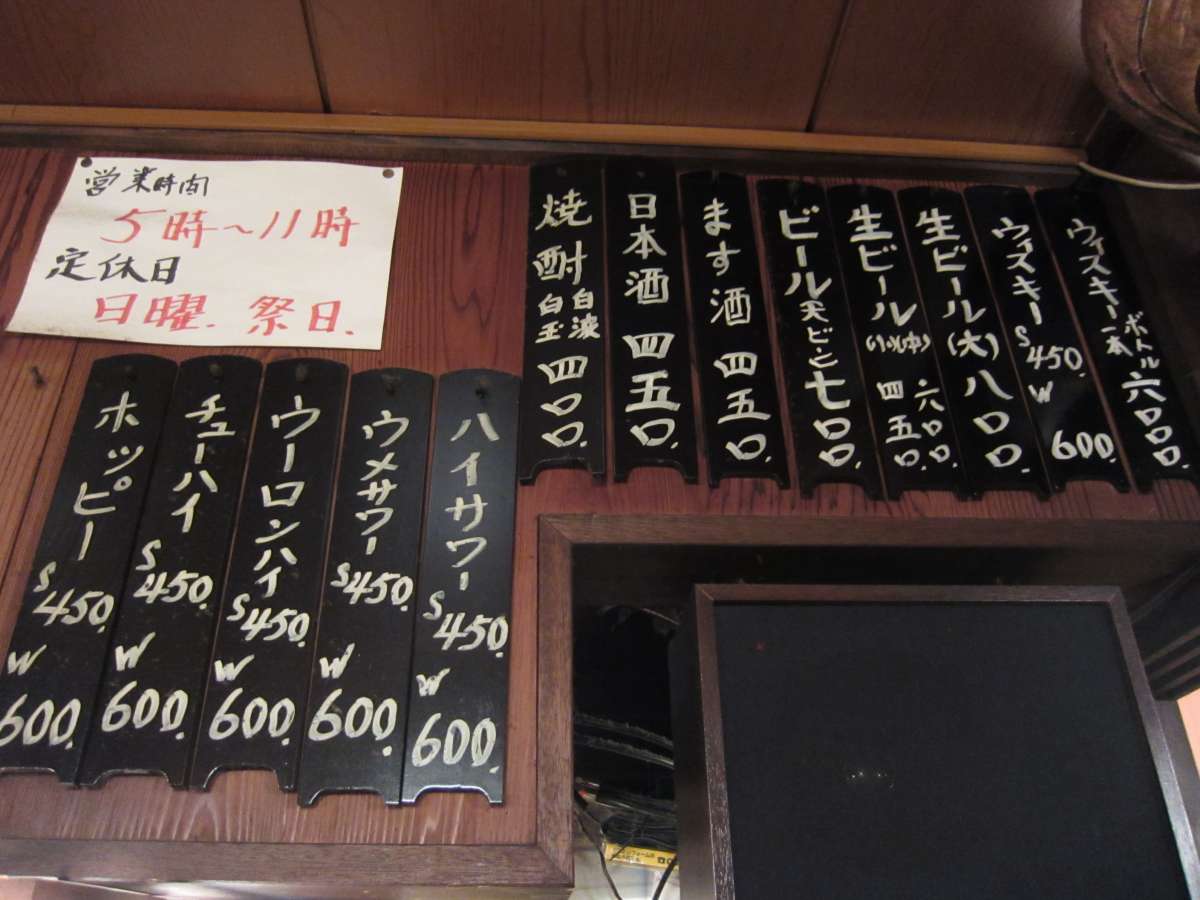 営業時間
5時～11時
定休日
日曜. 祭日.
ウィスキー ボトル一本 六000
ウィスキー S 450. W 600.
生ビール(大) 八00
生ビール 六00. 四五0.
ビール 大ビン 七00
ます酒 四五0.
日本酒 四五0.
焼酎 白波 白玉 四00.
ハイサワー S 450. W 600.
ウメサワー S 450. W 600.
ウーロンハイ S 450. W 600.
チューハイ S 450. W 600.
ホッピー S 450. W 600.